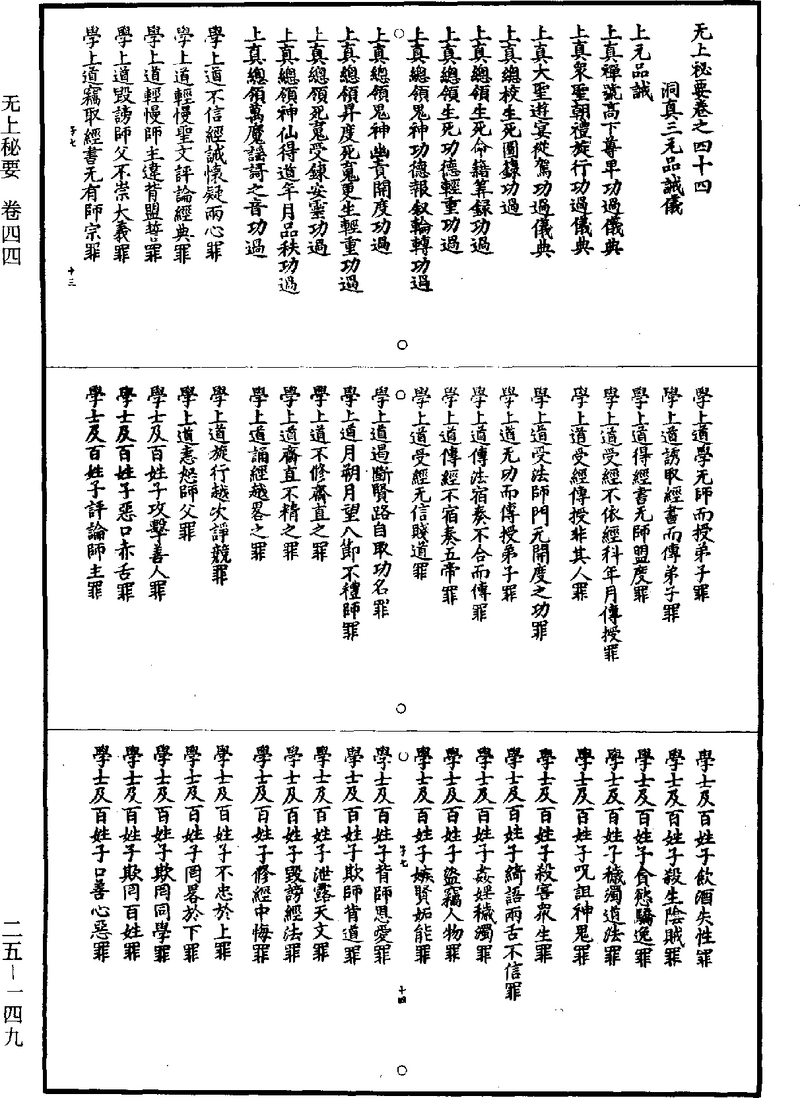 无上秘要卷之四十四
洞真三元品誡儀
上元品誡
上真禪號高下尊卑功過儀典
上真衆聖朝禮旋行功過儀典
上真大聖遊宴從駕功過儀典
上真總校生死圖錄功過
上真總領生死命籍筭録功過
上真總領生死功德輕重功過
上真總領鬼神功德報叙輪轉功過
上真總領鬼神幽責開度功過
上真總領昇度死䰟更生輕重功過
上真總領死䰟受鍊安靈功過
上真總領神仙得道年月品秩功過
上真總領萬魔謡謌之音功過
學上道不信經誡懷疑兩心罪
學上道輕慢聖文評論經典罪
學上道輕慢師主違背盟誓罪
學上道毀謗師父不崇大義罪
學上道竊取經書无有師宗罪
學上道學无師而授弟子罪
學上道誘取經書而傳弟子罪
學上道得經書无師盟度罪
學上道受經不依經科年月傳授罪
學上道受經傳授非其人罪
學上道受法師門无開度之功罪
學上道无功而傳授弟子罪
學上道傳法宿奏不合而傳罪
學上道傳經不宿奏五帝罪
學上道受經无信賤道罪
學上道遏斷賢路自取功名罪
學上道月朔月望八節不禮師罪
學上道不修齋直之罪
學上道齋直不精之罪
學上道誦經越畧之罪
學上道旋行越次諍競罪
學上道恚怒師父罪
學士及百姓子攻擊善人罪
學士及百姓子惡口赤舌罪
學士及百姓子評論師主罪
學士及百姓子飲酒失性罪
學士及百姓子殺生陰賊罪
學士及百姓子貪慾驕逸罪
學士及百姓子穢濁道法罪
學士及百姓子呪詛神鬼罪
學士及百姓子殺害衆生罪
學士及百姓子綺語兩舌不信罪
學士及百姓子姦婬穢濁罪
學士及百姓子盜竊人物罪
學士及百姓子嫉賢妬能罪
學士及百姓子背師恩愛罪
學士及百姓子欺師背道罪
學士及百姓子泄露天文罪
學士及百姓子毀謗經法罪
學士及百姓子修經中悔罪
學士及百姓子不忠於上罪
學士及百姓子罔畧於下罪
學士及百姓子欺罔同學罪
學士及百姓子欺罔百姓罪
學士及百姓子口善心惡罪
无上秘要 卷四四
二五—一四九
十三
十四